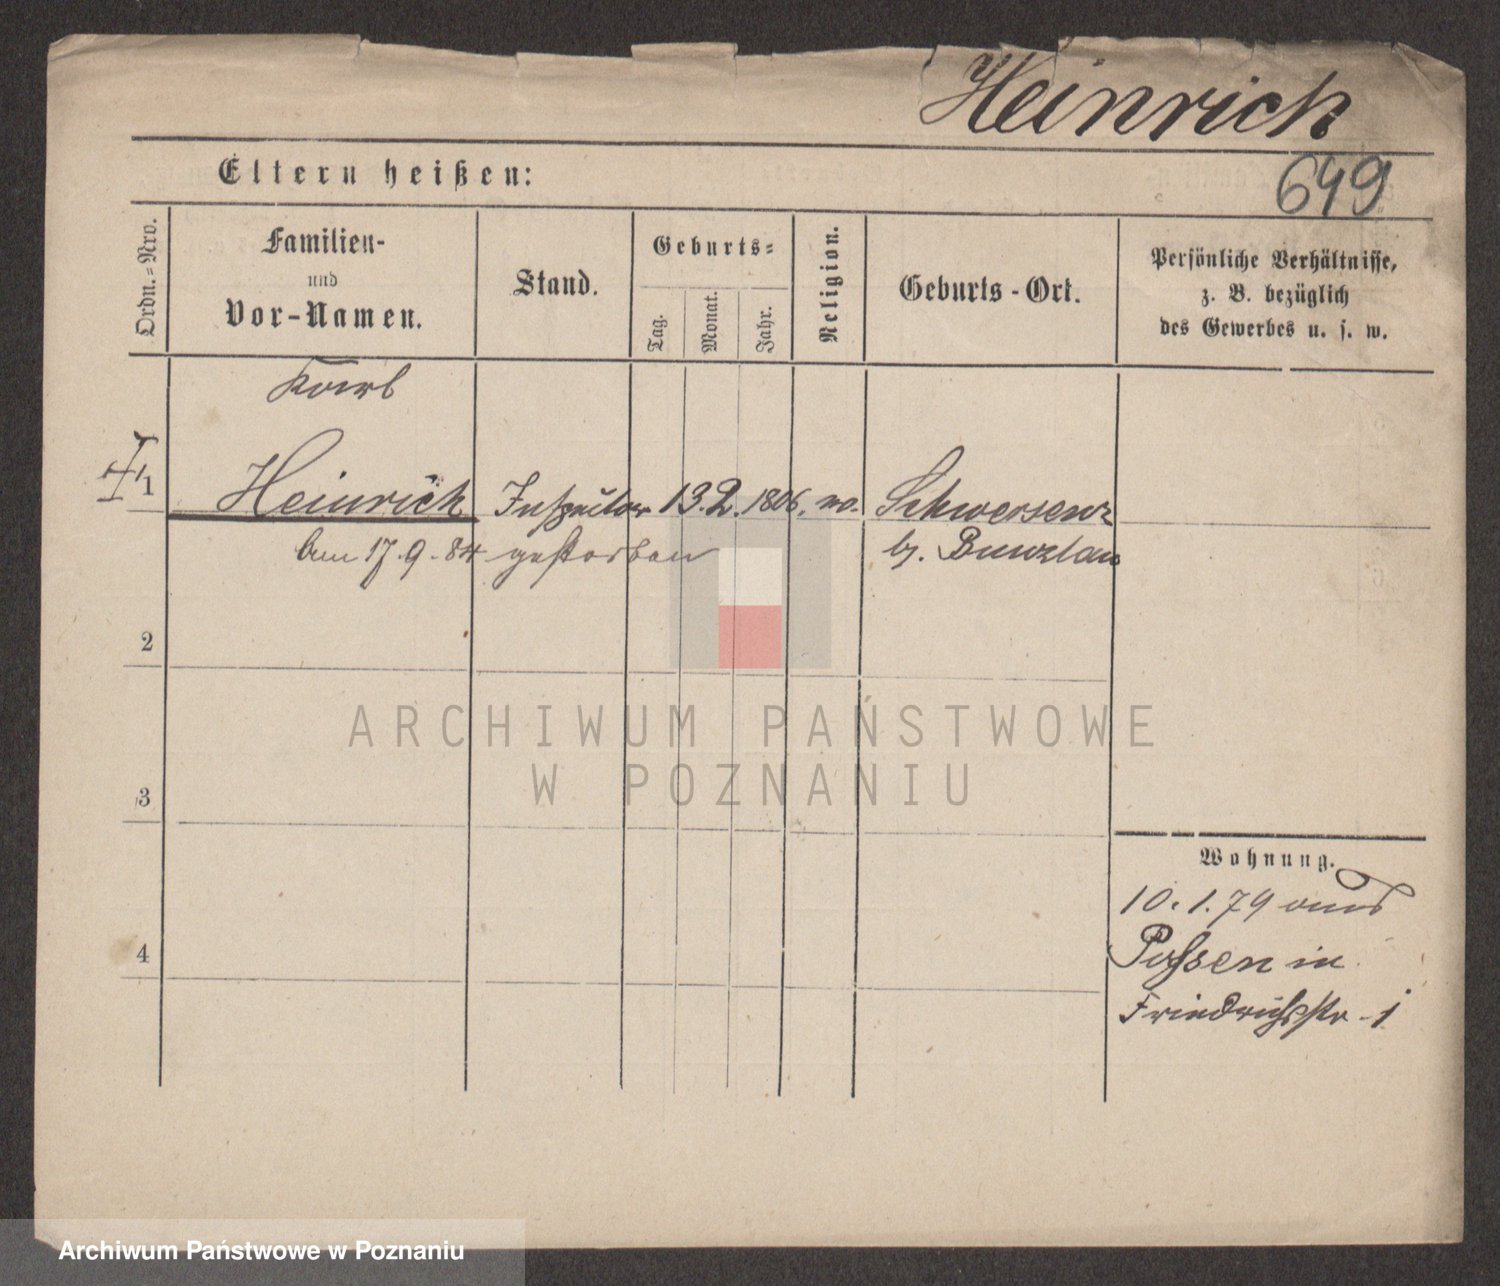 Heinrich
649
Eltern heißen:
Ordn.=Nro.
Familien-
und
Vor-Namen.
Stand.
Geburts=
Tag.
Monat.
Jahr.
Religion.
Geburts-Ort.
Persönliche Verhältnisse,
z. B. bezüglich
des Gewerbes u. s. w.
Karl
1 Heinrich Inspector 13. 2. 1806. Schwersenz
am 17. 9. 84 gestorben b. Bunzlau
2
3
4
Wohnung.
10. 1. 79 aus
Posen in
Friedrichstr. 1
ARCHIWUM PAŃSTWOWE
W POZNANIU
Archiwum Państwowe w Poznaniu